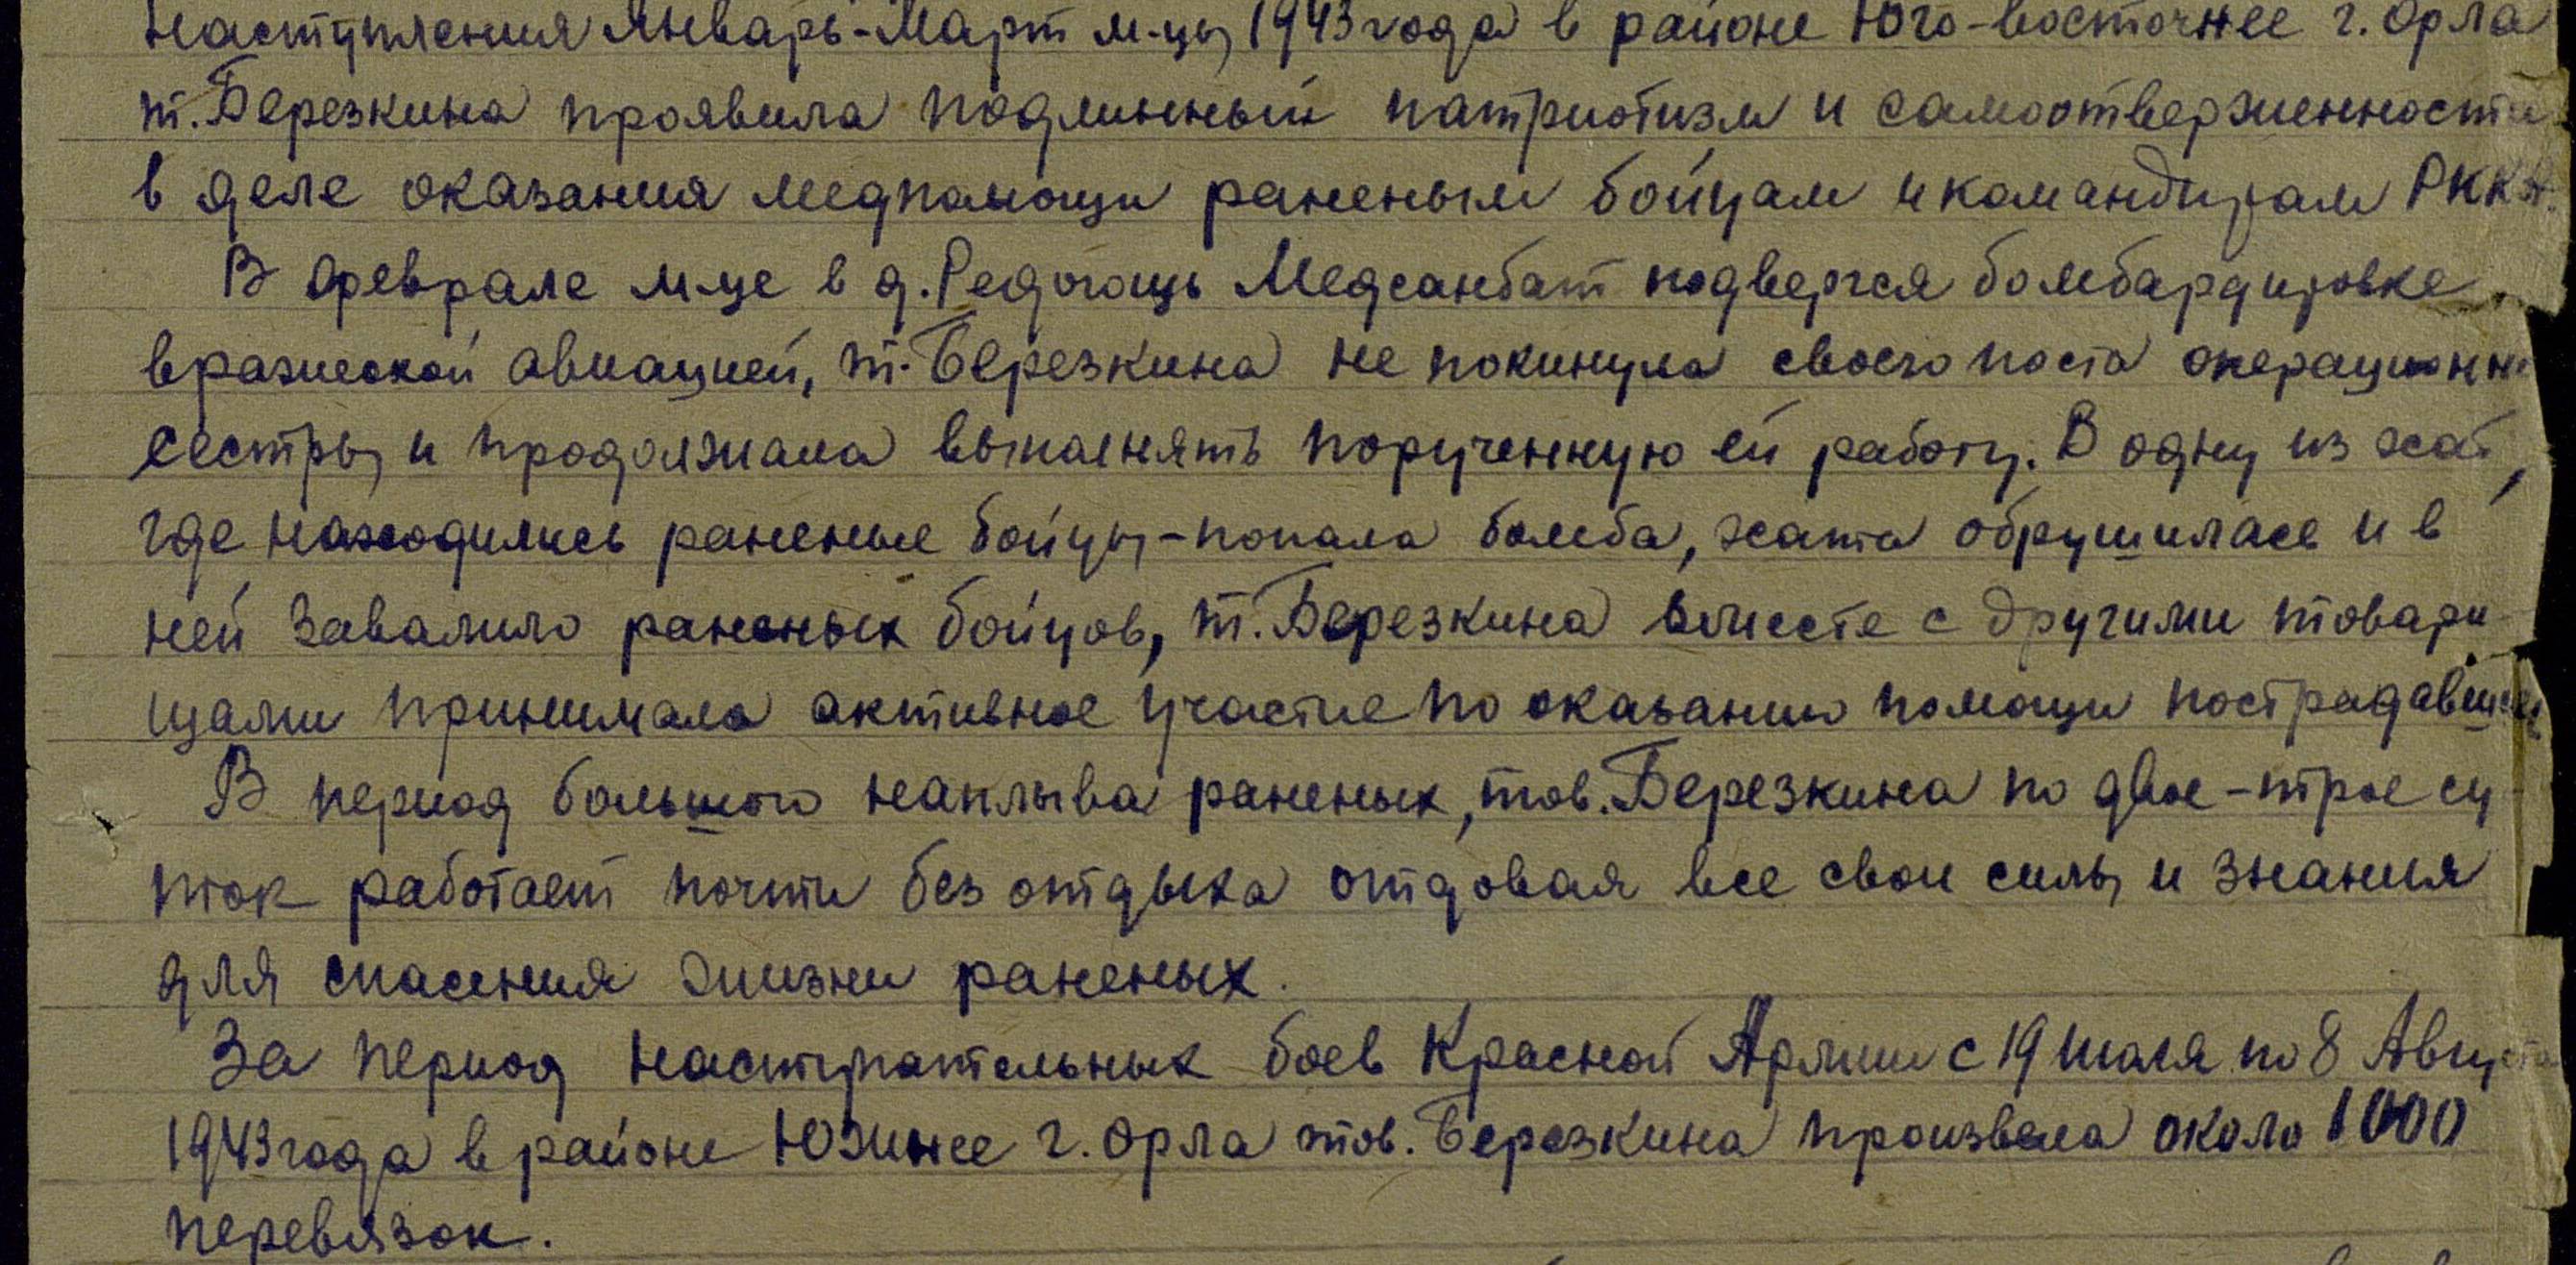 наступления Январь-Март м-цы 1943 года в районе Юго-восточнее г. Орла
т. Березкина проявила подлинный патриотизм и самоотверженность
в деле оказания медпомощи раненым бойцам и командирам РККА.
В феврале м-це в д. Редогощь Медсанбат подвергся бомбардировке
вражеской авиацией, т. Березкина не покинула своего поста операционн
сестры и продолжала выполнять порученную ей работу. В одну из хат,
где находились раненые бойцы - попала бомба, хата обрушилась и в
ней завалило раненых бойцов, т. Березкина вместе с другими товари-
щами принимала активное участие по оказанию помощи пострадавшим
В период большого наплыва раненых, тов. Березкина по двое-трое су
ток работает почти без отдыха отдовая все свои силы и знания
для спасения жизни раненых.
За период наступательных боев Красной Армии с 19 июля по 8 Августа
1943 года в районе Южнее г. Орла тов. Березкина произвела около 1000
перевязок.